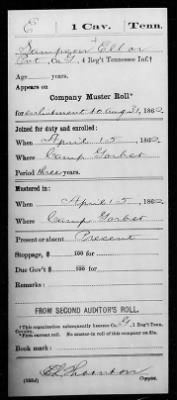 E | 1 Cav. | Tenn.
Sampson Ellor
Pvt., Co. G, 4 Reg't Tennessee Inf.†
Age years.
Appears on
Company Muster Roll*
for enlistment to Aug 31, 1862.
Joined for duty and enrolled:
When April 15, 1862.
Where Camp Garber
Period three years.
Mustered in:
When April 15, 186
Where Camp Garber
Present or absent Present
Stoppage, $ 100 for
Due Gov't $ 100 for
Remarks:
FROM SECOND AUDITOR'S ROLL.
† This organization subsequently became Co. , 1 Reg't Tenn.
Cavalry.
*First current roll. No muster-in roll of this company on file.
Book mark:
Copyist.